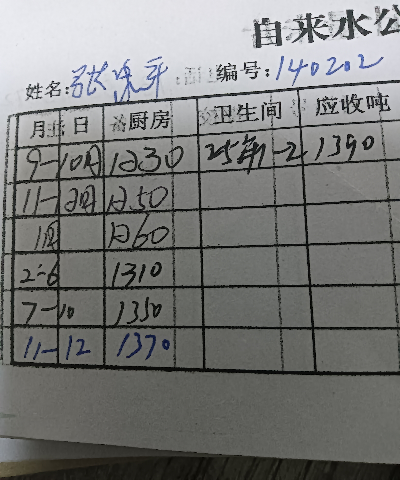 自来水公
姓名: 张 平 编号: 140202
月 日 厨房 卫生间 应收吨
9-10月 1230 25年1-2 1390
11-12月 1250
1月 1260
2-6 1310
7-10 1350
11-12 1370